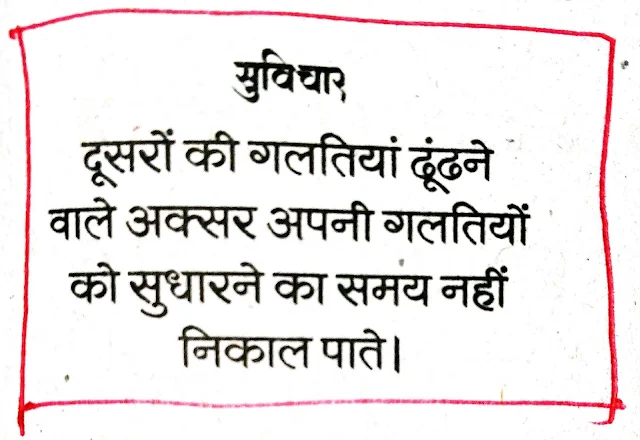 सुविचार
दूसरों की गलतियां ढूंढने
वाले अक्सर अपनी गलतियों
को सुधारने का समय नहीं
निकाल पाते।